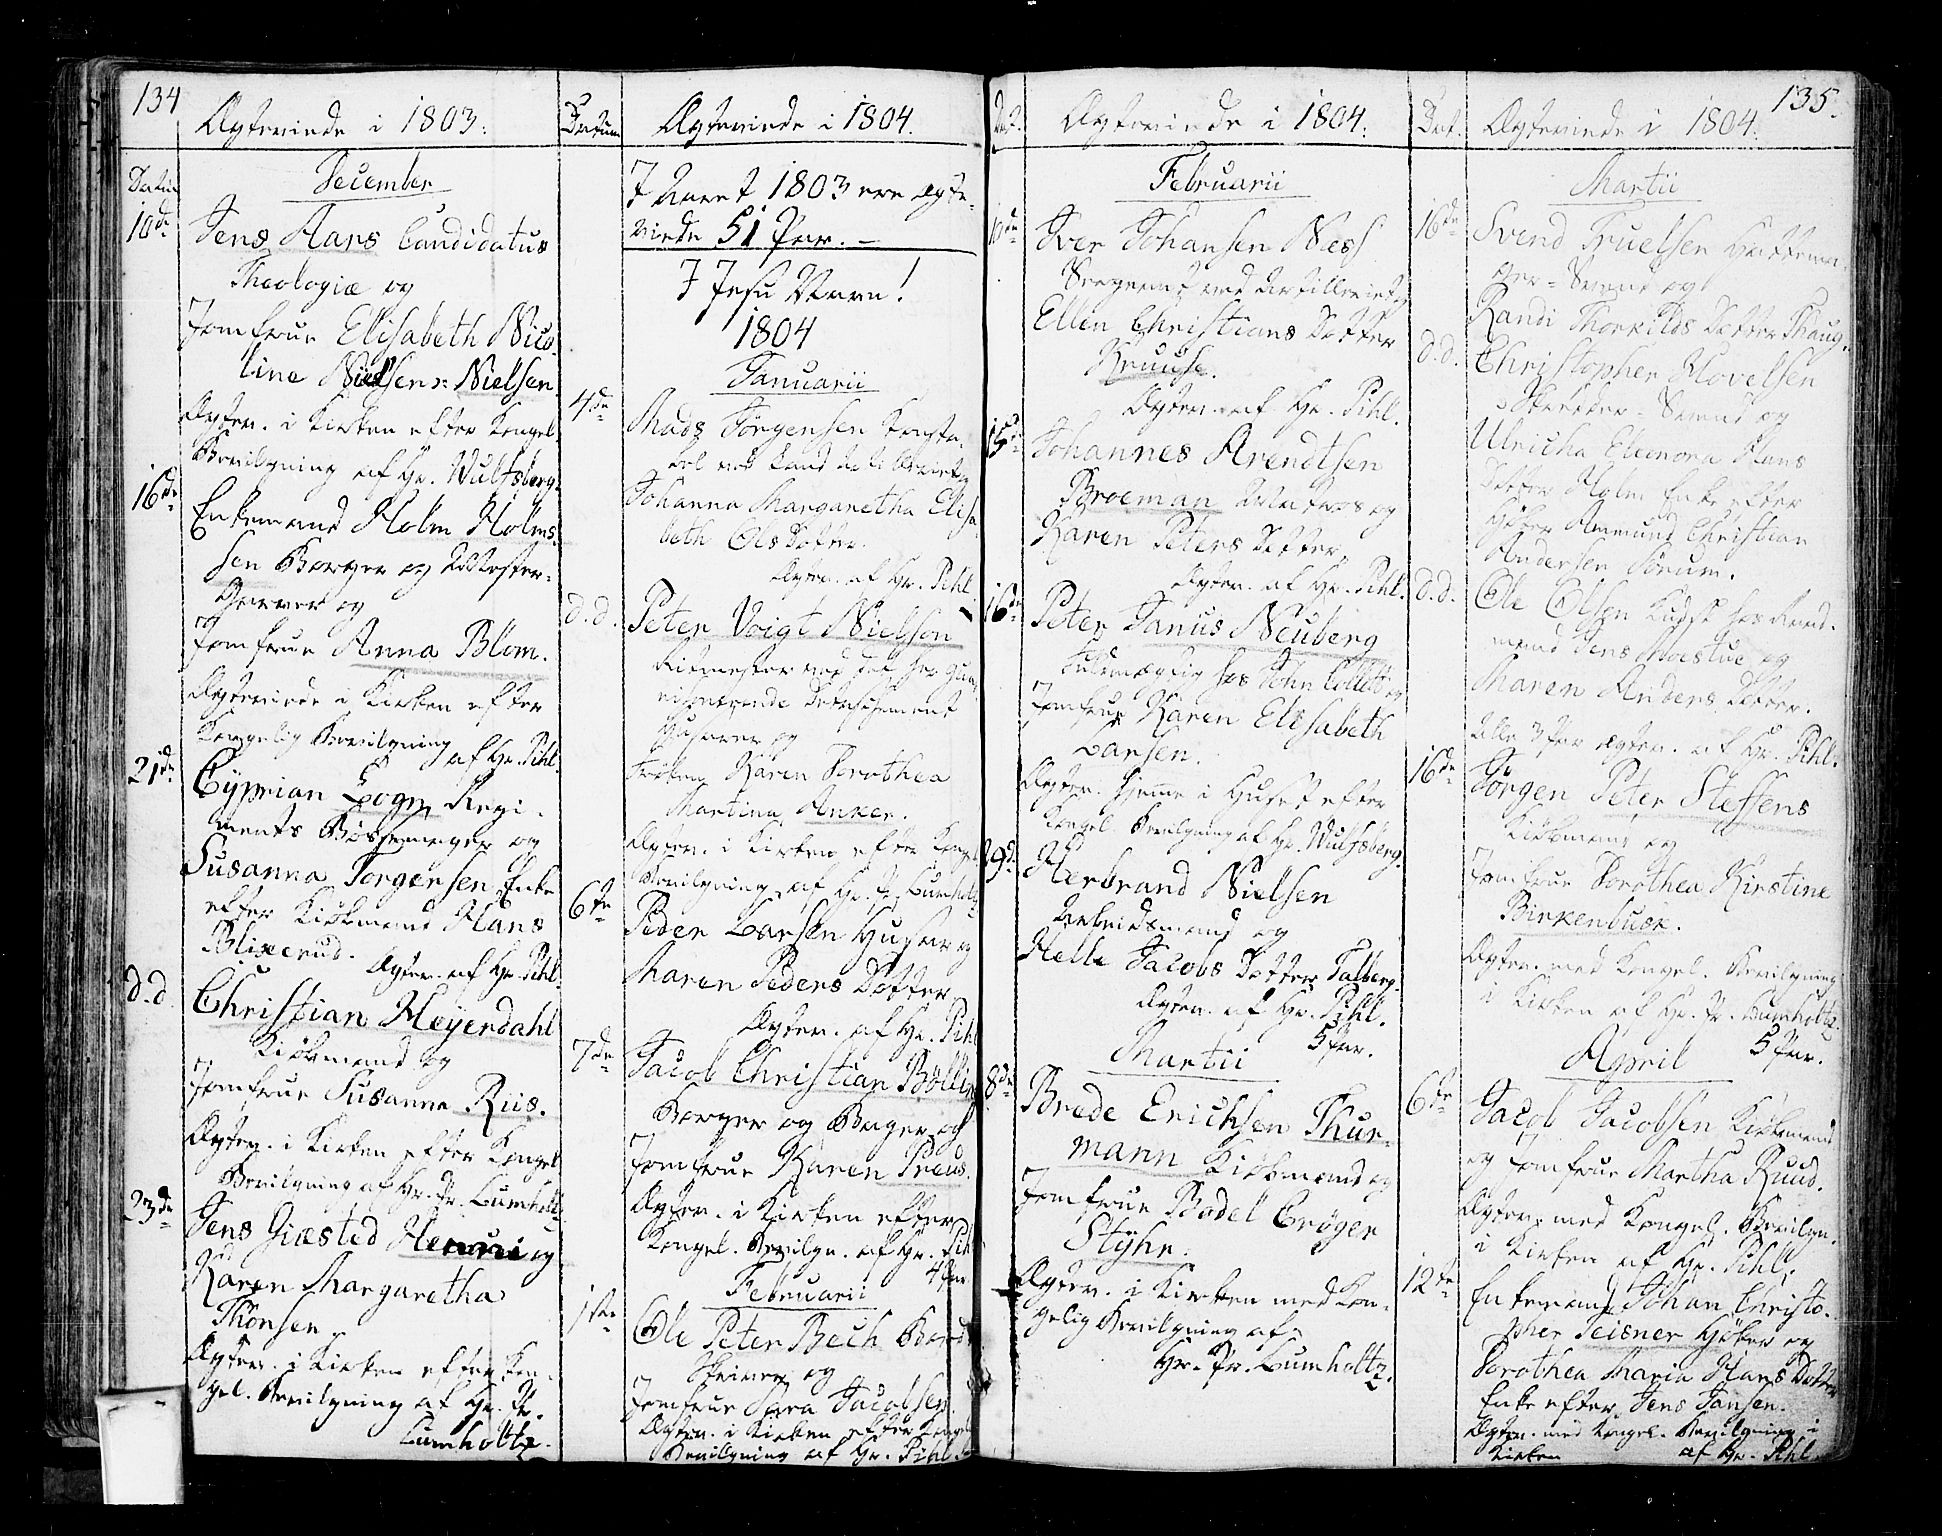 134
Ægteviede i 1803.
Datum
December
10de
Jens Aars Candidatus
Theologiæ og
Jomfrue Elisabeth Nico-
line Nielsen
Ægtev. i Kirken efter Kongel.
Bevilgning af Hr. Wulfsberg.
16de
Enkemand Holm Holms-
sen Borger og Mester-
Garver og
Jomfrue Anna Blom.
Ægteviede i Kirken efter
Kongelig Bevilgning af Hr. Pihl.
21de
Cyprian Logn Regi-
ments Bøssemager og
Susanna Torgersen Enke
efter Kiøbmand Hans
Blixerud. Ægtev. af Hr. Pihl.
d.d.
Christian Heyerdahl
Kiøbmand og
Jomfrue Susanna Riis.
Ægtev. i Kirken efter Kongel.
Bevilgning af Hr. Pr. Lumholtz.
23de
Jens Giæsted og
Karen Margaretha
Thönsen
Ægtev. i Kirken efter Kon-
gel. Bevilgning af Hr. Pr.
Lumholtz.
Datum
Ægteviede i 1804.
I Aaret 1803 ere Ægte-
viede 51 Par.
I Jesu Navn!
1804
Januarii
4de
Mads Jörgensen Konsta-
bel ved Land Artilleriet og
Johanna Margaretha Elisa-
beth Ols Dotter.
Ægtev. af Hr. Pihl
d.d.
Peter Voigt Nielson
Ritmester ved det her
Detaschement
Husarer og
Frøken Karen Dorothea
Martina Anker.
Ægtev. i Kirken efter Kongel.
Bevilgning af Hr. Pr. Lumholtz.
6te
Peder Larsen Husar og
Maren Peders Dotter
Ægtev. af Hr. Pihl
7de
Jacob Christian Bölling
Borger og Bager og
Jomfrue Karen Preus.
Ægtev. i Kirken efter
Kongel. Bevilgn. af Hr. Pihl
4 Par.
Februarii
1ste
Ole Peter Bech Bord-
skriver og
Jomfrue Sara Jacobsen.
Ægtev. i Kirken efter Kongel.
Bevilgning af Hr. Pihl.
Dat.
Ægteviede i 1804.
Februarii
10de
Iver Johansen Ness
Sergeant ved Artilleriet og
Ellen Christians Dotter
Kruuse.
Ægtev. af Hr. Pihl.
15de
Johannes Arendtsen
Broeman Matros og
Karen Peters Dotter
Ægtev. af Hr. Pihl.
16de
Peter Janus Neuberg
Fuldmægtig hos John Collett og
Jomfrue Karen Elisabeth
Larsen.
Ægtev. hjemme i Huset efter
Kongel. Bevilgning af Hr. Wulfsberg.
29de
Herbrand Nielsen
Arbeidsmand og
Helle Jacobs Dotter Talberg.
Ægtev. af Hr. Pihl.
5 Par.
Martii
8de
Brede Erichsen Thur-
mann Kiøbmand og
Jomfrue Bodel Cröger
Styhr.
Ægtev. i Kirken med Kon-
gelig Bevilgning af
Hr. Pr. Lumholtz.
135.
Dat.
Ægteviede i 1804.
Martii
16de
Svend Truelsen Hattema-
ger-Svend og
Randi Thorkilds Dotter Thaug.
d.d.
Christopher Hovelsen
Skrædder-Svend og
Ulricha Eleonora Hans
Dotter Holm Enke efter
Høker Ammund Christian
Andersen Sörum.
d.d.
Ole Olsen Kudsk hos Raad-
mand Jens Moestue og
Maren Anders Dotter.
Alle 3 Par ægtev. af Hr. Pihl.
16de
Jörgen Peter Steffens
Kiøbmand og
Jomfrue Dorothea Kirstine
Birkenbusk.
Ægtev. med Kongel. Bevilgning
i Kirken af Hr. Pr. Lumholtz.
5 Par.
April
6te
Jacob Jacobsen Kiøbmand
og Jomfrue Martha Ruud.
Ægtev. med Kongel. Bevilgn.
i Kirken af Hr. Pihl.
12te
Enkemand Johan Christo-
pher Teisner Høker og
Dorothea Maria Hans Dotter
Enke efter Jens Jansen.
Ægtev. med Kongel. Bevilgning i
Kirken af Hr. Pihl